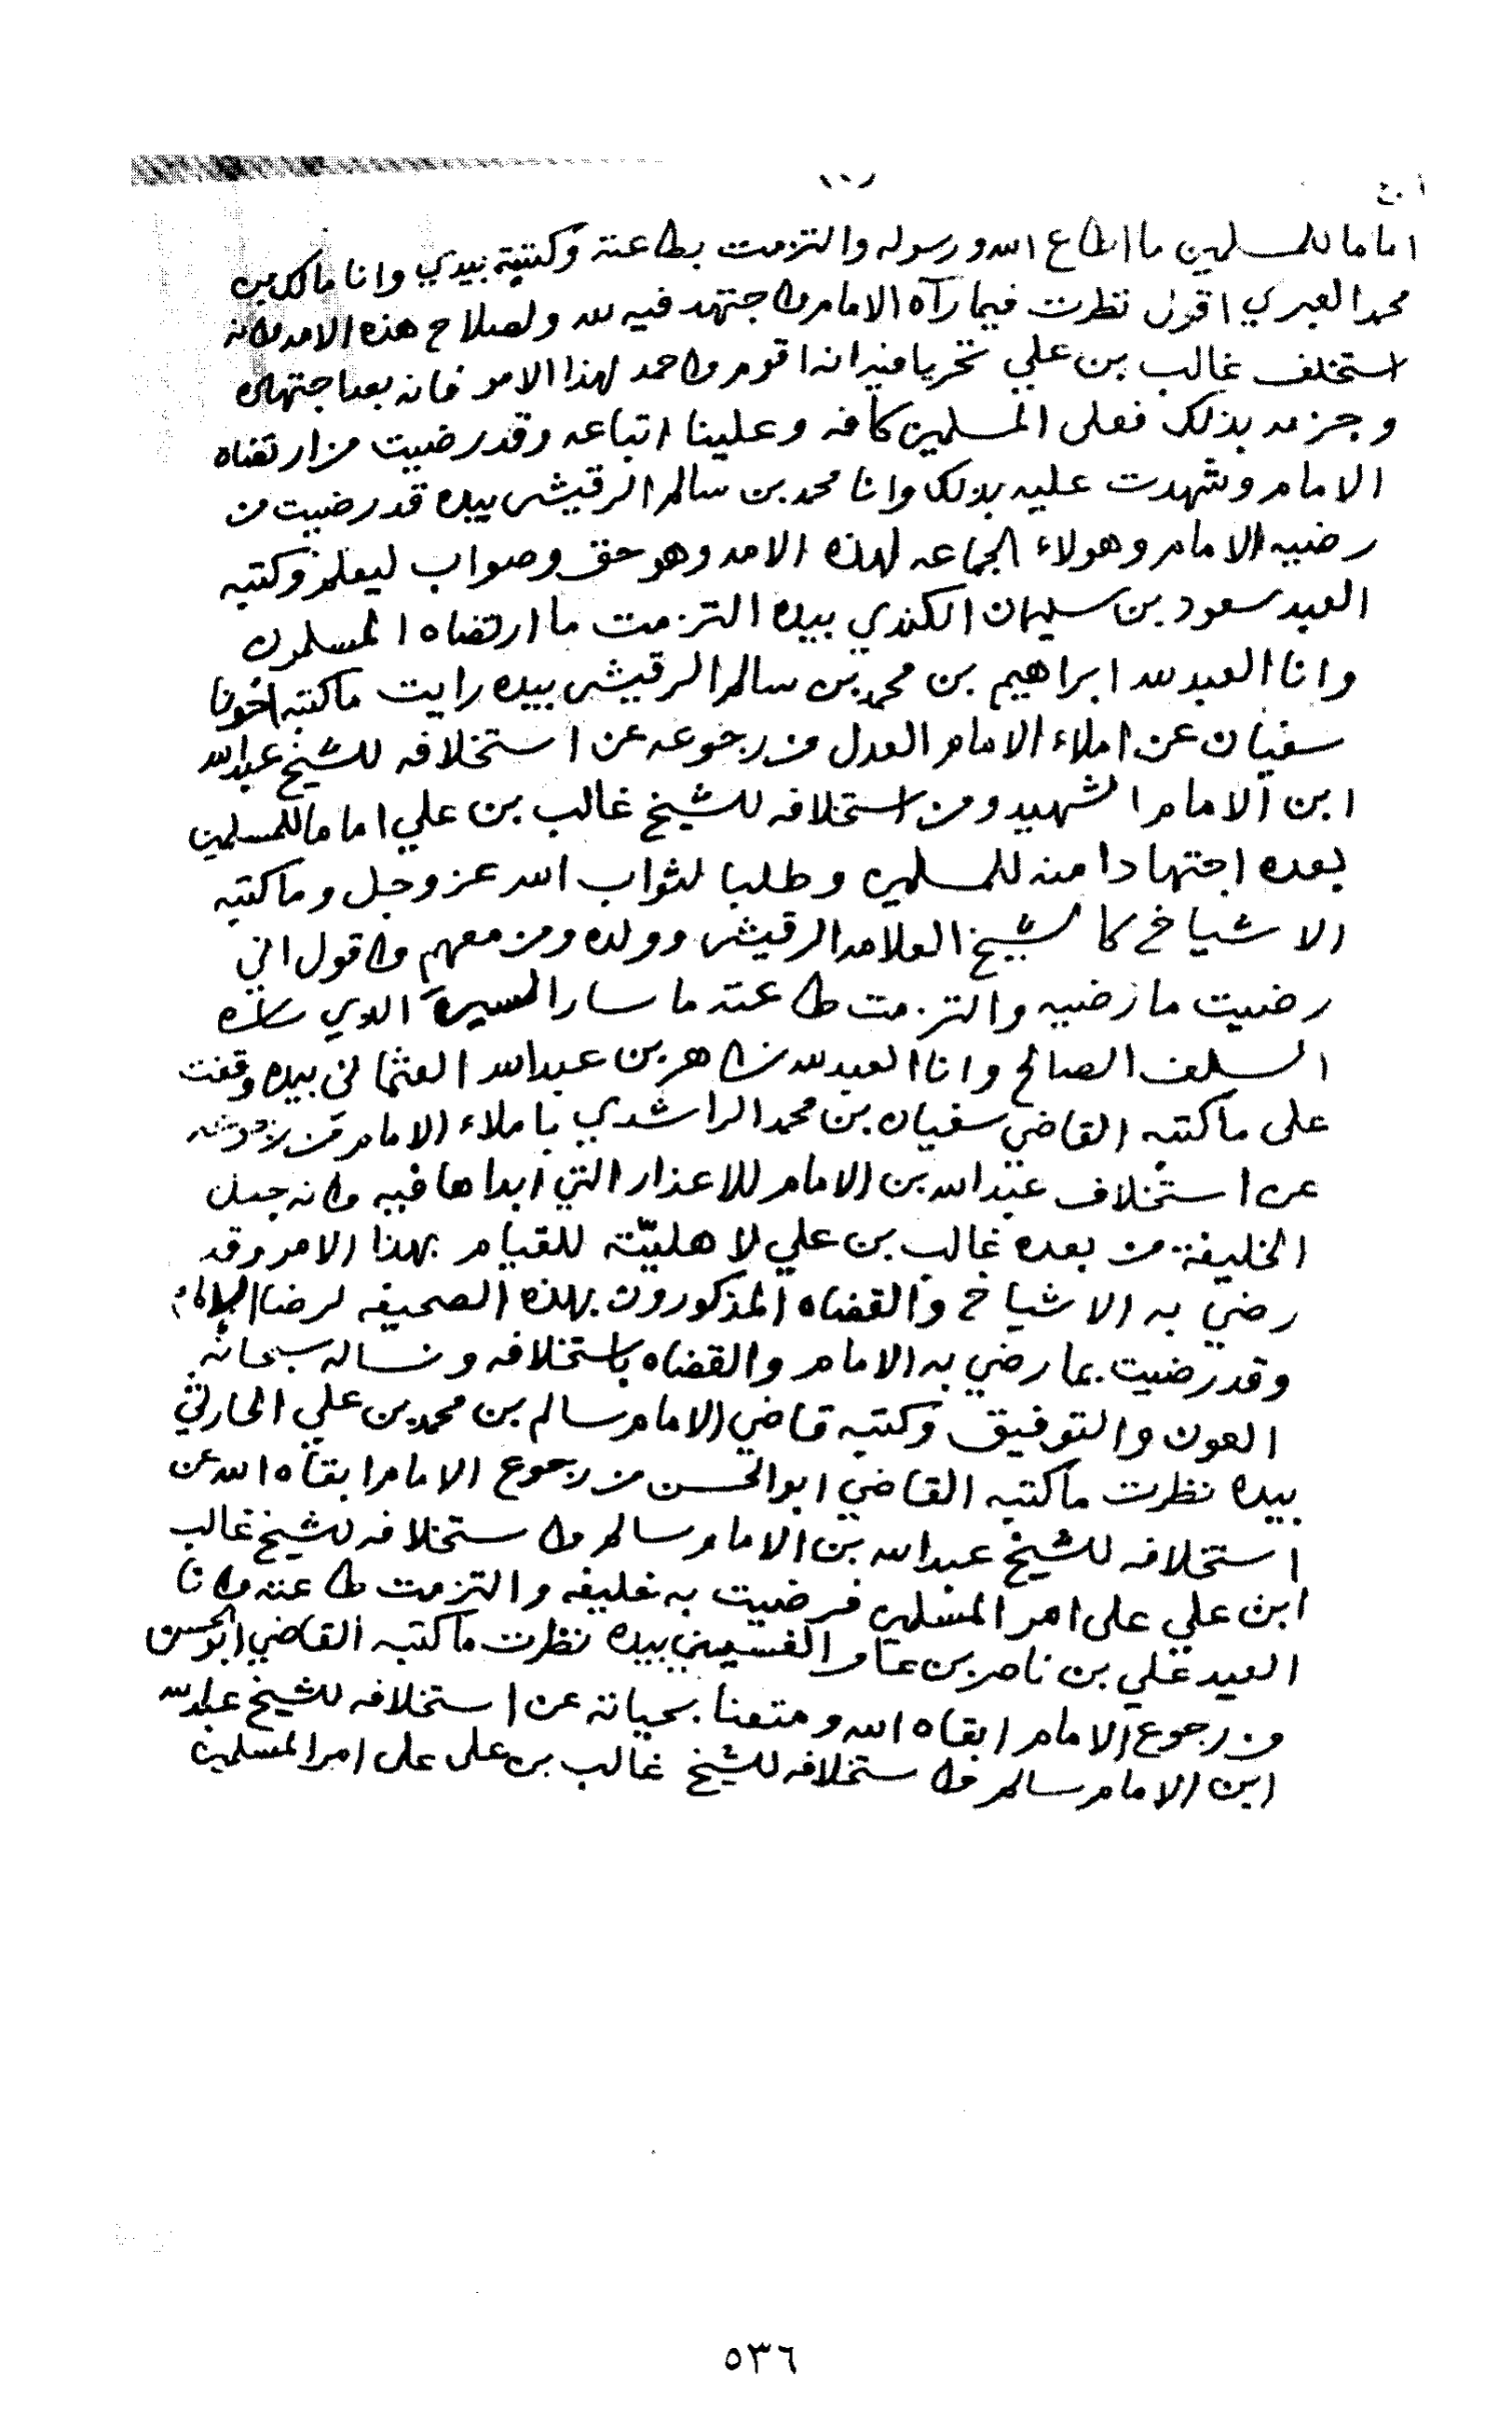 اماما للمسلمين ما اطاع الله ورسوله والتزمت بطاعته وكتبته بيدي وانا مالك بن
محمد العبري اقول نظرت فيما رآه الامام واجتهد فيه لله ولصلاح هذه الامه وانه
استخلف غالب بن علي تحريا منه انه اقوم واحمد لهذا الامر فانه بعد اجتهاده
وجزمه بذلك فعلى المسلمين كافه وعلينا اتباعه وقد رضيت من ارتضاه
الامام وشهدت عليه بذلك وانا محمد بن سالم الرقيشي بيده قد رضيت من
رضيه الامام وهولاء الجماعه لهذه الامه وهو حق وصواب ليعلم وكتبه
العبد سعود بن سليمان الكندي بيده التزمت ما ارتضاه المسلمون
وانا العبد لله ابراهيم بن محمد بن سالم الرقيشي بيده رايت ماكتبه اخونا
سفيان عن املاء الامام العدل من رجوعه عن استخلافه للشيخ عبدالله
ابن الامام الشهيد ومن استخلافه للشيخ غالب بن علي اماما للمسلمين
بعده اجتهادا منه للمسلمين وطلبا لثواب الله عز وجل وما كتبه
الاشياخ كا لشيخ العلامه الرقيشي وولده ومن معهم واقول اني
رضيت ما رضيه والتزمت طاعته ما سار السيرة الذي ساره
السلف الصالح وانا العبد لله زاهر بن عبدالله العثماني بيده وقفت
على ماكتبه القاضي سفيان بن محمد الراشدي باملاء الامام من رجوعه
عن استخلاف عبدالله بن الامام للاعذار التي ابداها فيه وانه جعل
الخليفة من بعده غالب بن علي لاهليّته للقيام بهذا الامر وقد
رضي به الاشياخ والقضاه المذكورون بهذه الصحيفه لرضا الامام
وقد رضيت بما رضي به الامام والقضاه باستخلافه ونساله سبحانه
العون والتوفيق وكتبه قاضي الامام سالم بن محمد بن علي الحارثي
بيده نظرت ماكتبه القاضي ابو الحسن من رجوع الامام ابقاه الله عن
استخلافه للشيخ عبدالله بن الامام سالم واستخلافه لشيخ غالب
ابن علي على امر المسلمين فرضيت به خليفه والتزمت طاعته وانا
العبد علي بن ناصر بن عامر الغسيني بيده نظرت ماكتبه القاضي ابو الحسن
من رجوع الامام ابقاه الله ومتعنا بحياته عن استخلافه للشيخ عبدالله
ابن الامام سالم واستخلافه للشيخ غالب بن علي على امر المسلمين
٥٣٦